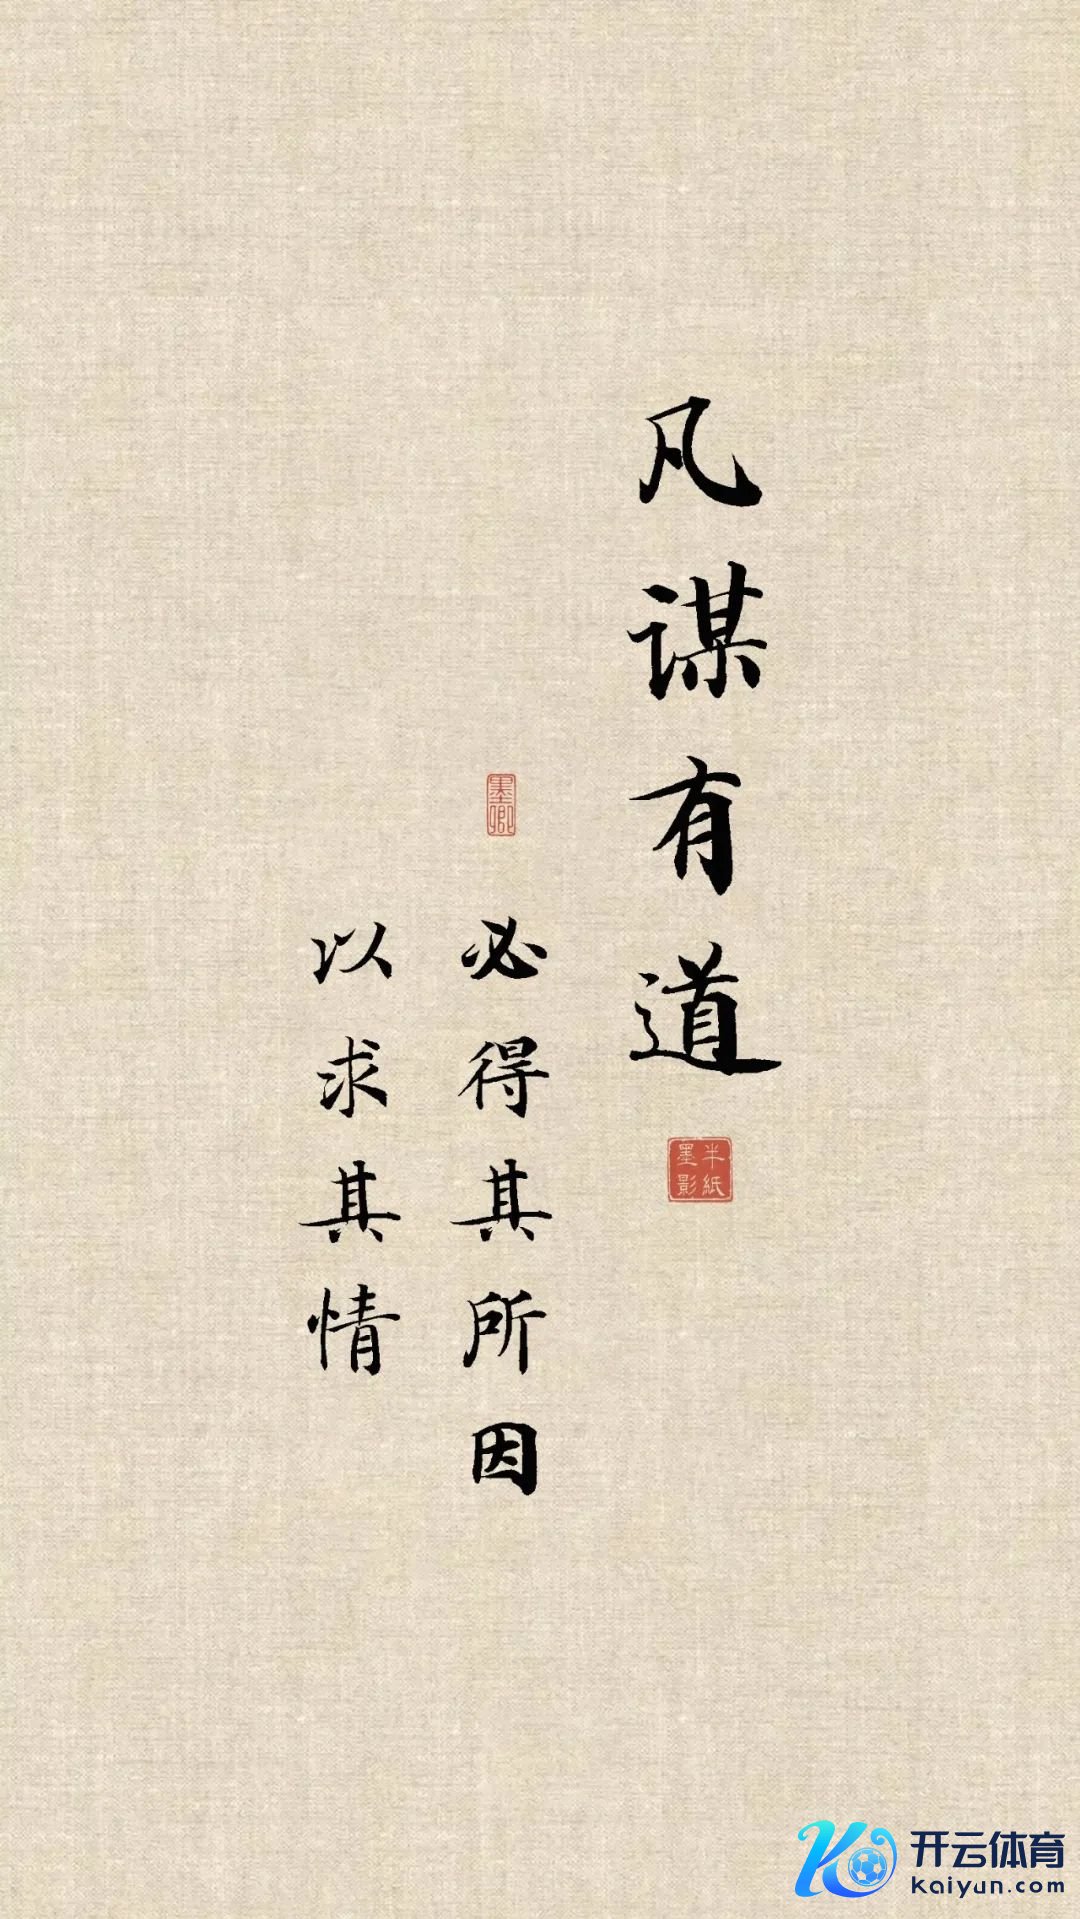 凡谋有道
半纸
墨影
墨卿
必得其所因
以求其情
开云体育
kaiyun.com